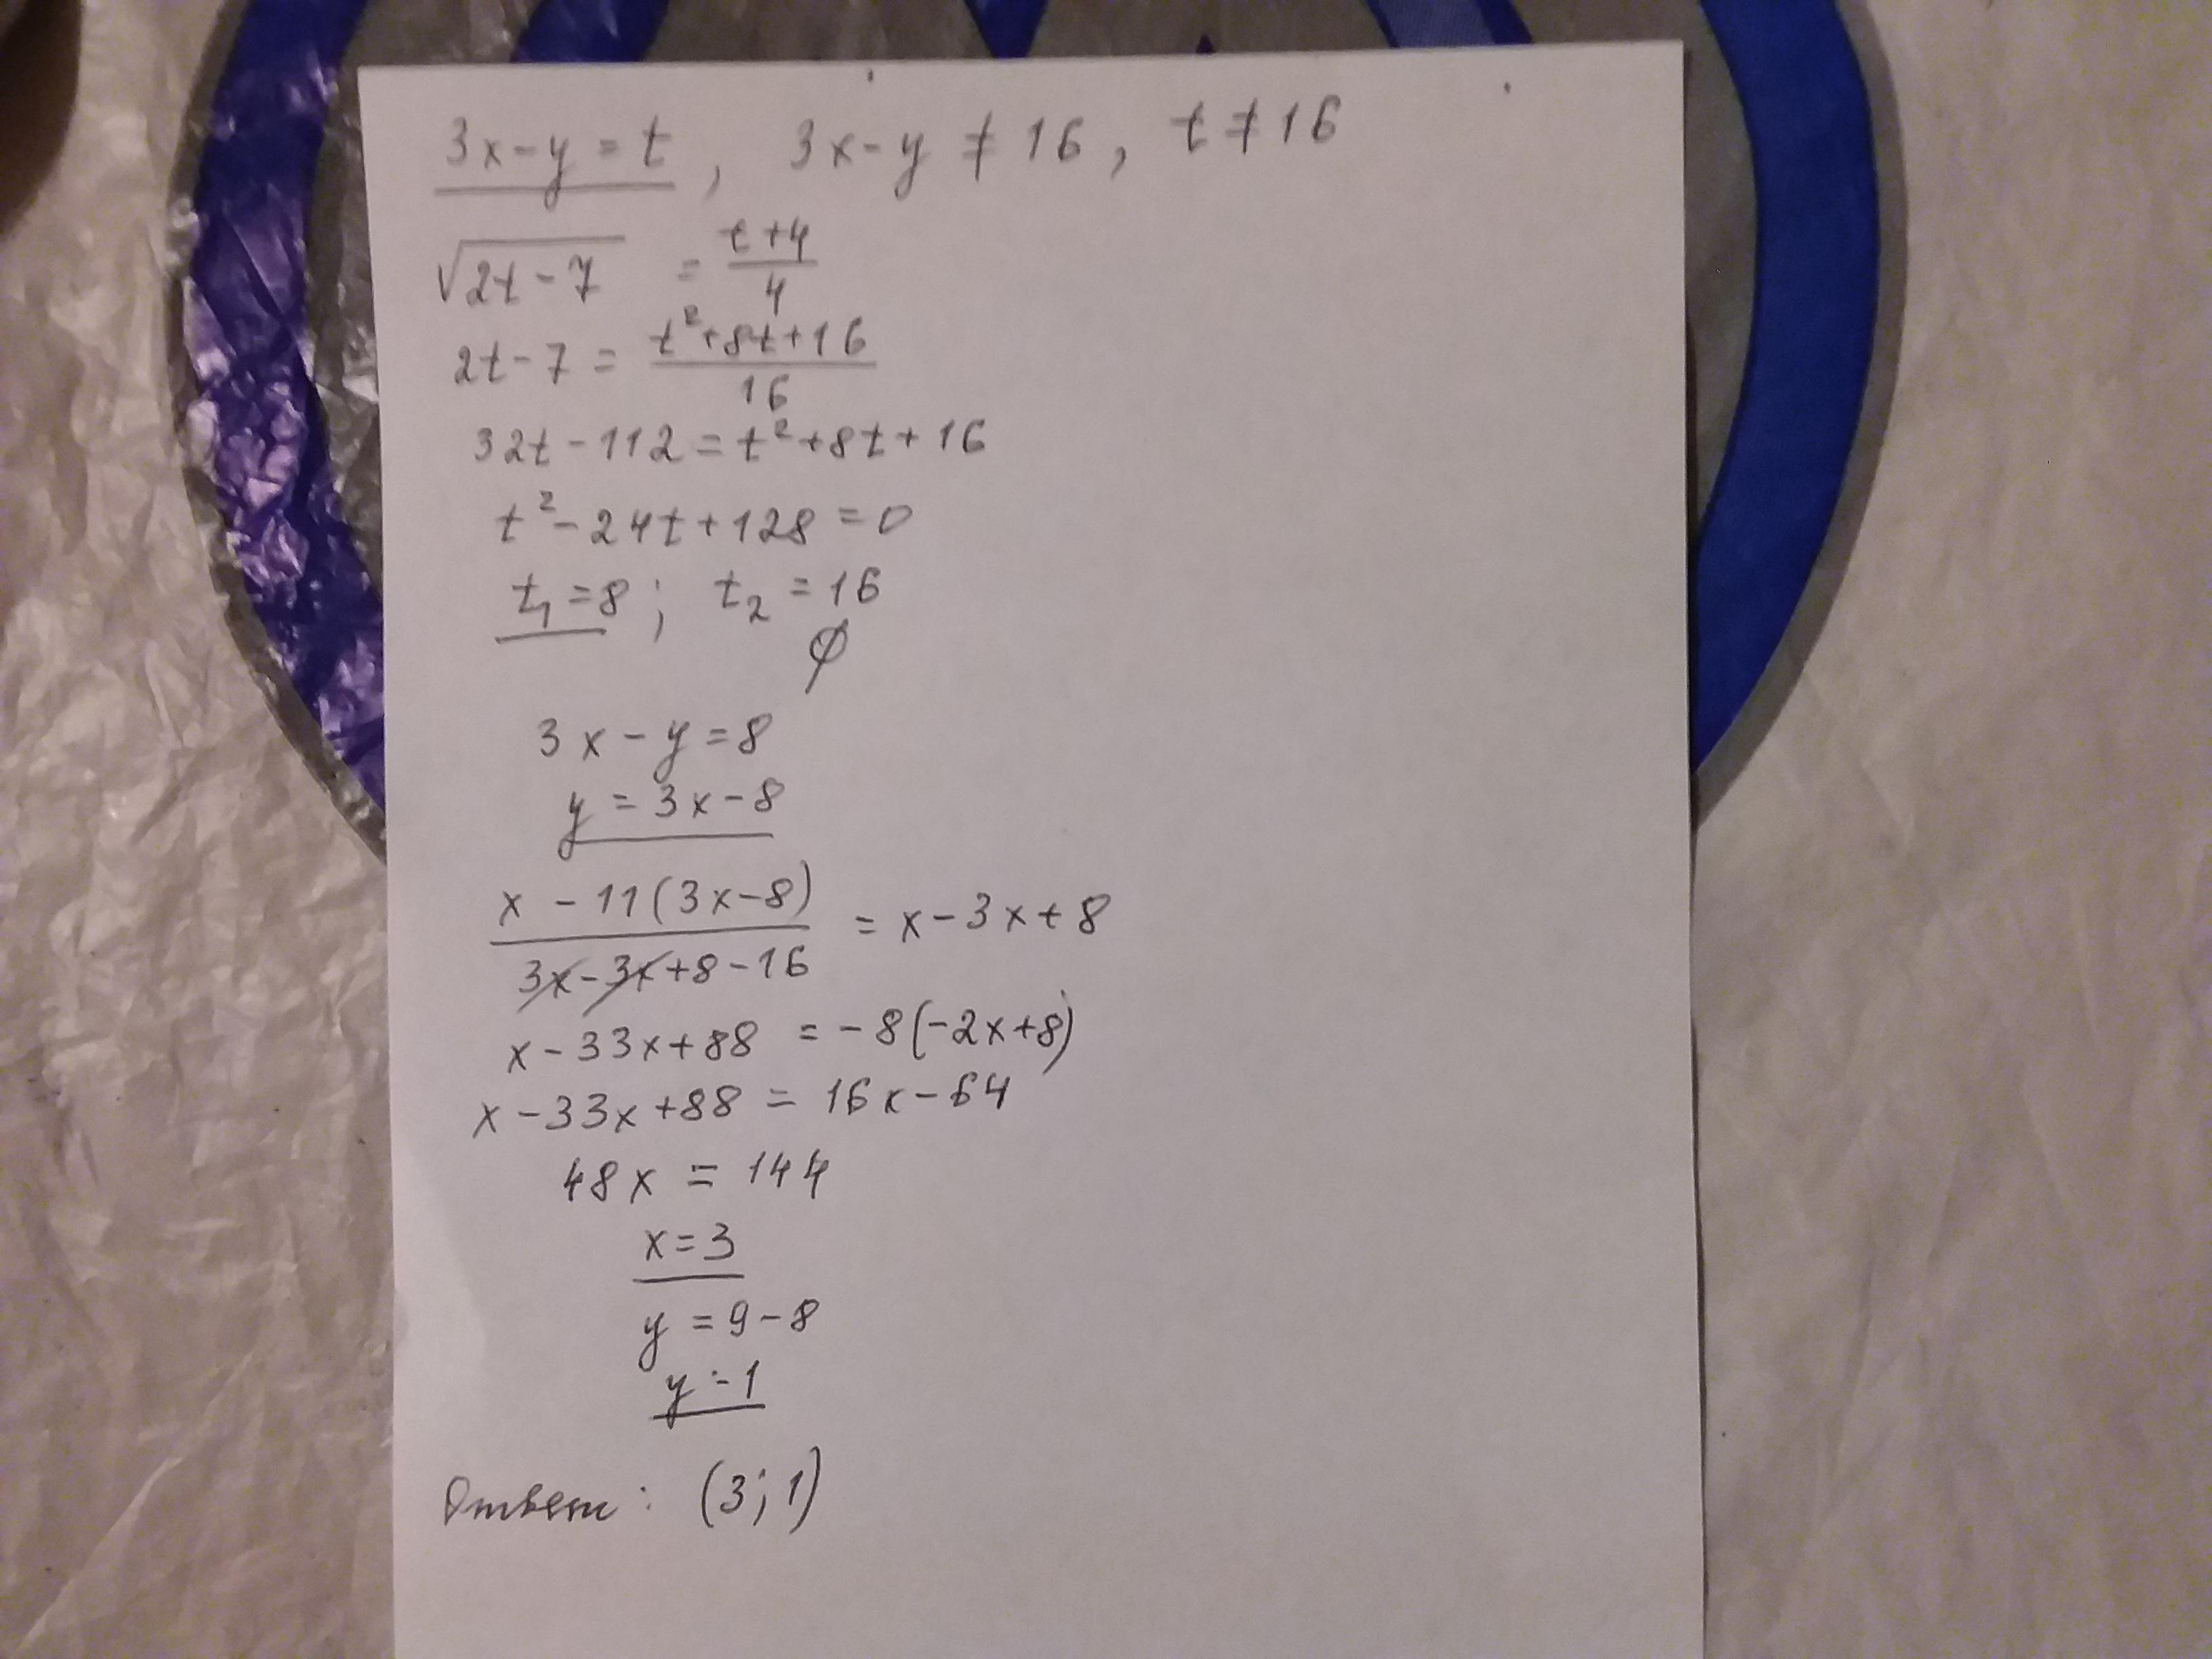 3x-y=t, 3x-y≠16, t≠16
√(2t-7) = (t+4)/4
2t-7 = (t²+8t+16)/16
32t-112=t²+8t+16
t²-24t+128=0
t₁=8; t₂=16
∅
3x-y=8
y=3x-8
(x-11(3x-8))/(3x-3x+8-16) = x-3x+8
x-33x+88 = -8(-2x+8)
x-33x+88 = 16x-64
48x = 144
x=3
y=9-8
y=1
Ответ: (3;1)